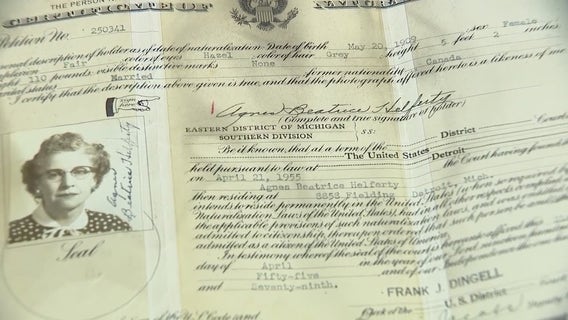 THE PERSON
CERTIFICATE OF
Petition No. 250341
personal description of holder as of date of naturalization: Date of birth May 20, 1909 sex Female
Fair color of eyes Hazel color of hair Grey height 5 feet 2 inches
110 pounds, visible distinctive marks None
Married former nationality Canada
I certify that the description above given is true, and that the photograph affixed hereto is a likeness of me.
Sign here
Agnes Beatrice Helferty
(Complete and true signature of holder)
EASTERN DISTRICT OF MICHIGAN
SOUTHERN DIVISION SS:
Be it known, that at a term of the District Court of
The United States
held pursuant to law at Detroit
on April 21, 1955 the Court having found
Agnes Beatrice Helferty
then residing at 6858 Fielding, Detroit, Mich.
intends to reside permanently in the United States (when so required by the
Naturalization Laws of the United States), had in all other respects complied with
the applicable provisions of such naturalization laws, and was entitled to be
admitted to citizenship, thereupon ordered that such person be and
admitted as a citizen of the United States of America.
In testimony whereof the seal of the court is hereunto affixed this
day of April in the year of our Lord nineteen hundred and
Fifty-five and of our Independence
Seventy-ninth.
FRANK J. DINGELL
Clerk of the U.S. District
Agnes
Beatrice Helferty
Seal